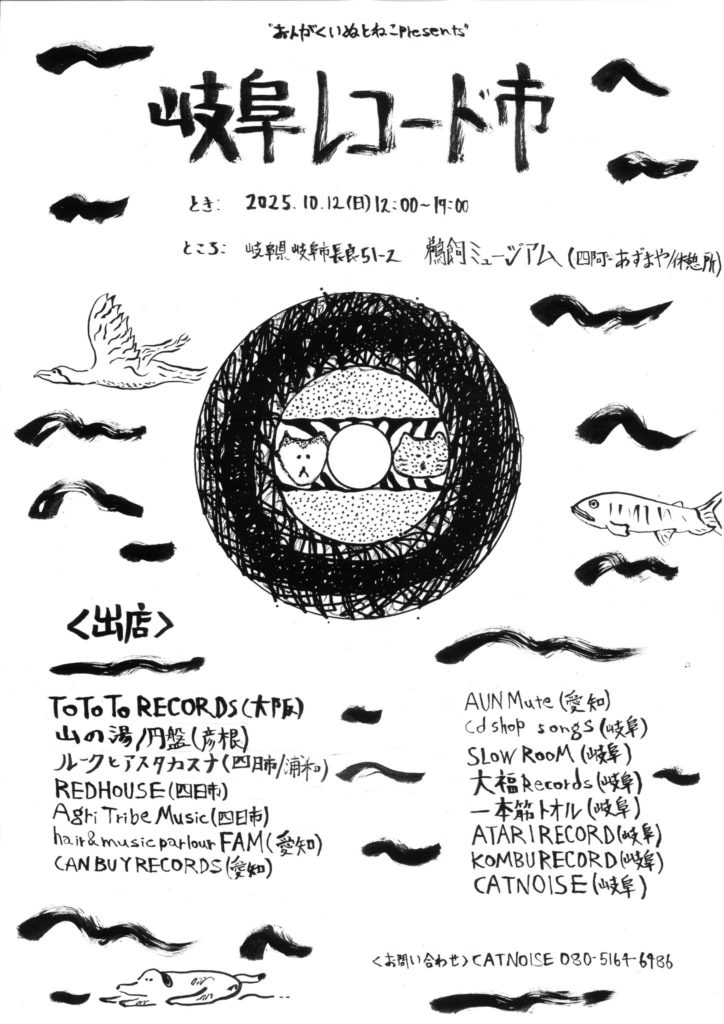 "おんがくいぬとねこPresents"
岐阜レコード市
とき: 2025.10.12(日)12:00~19:00
ところ: 岐阜県岐阜市長良51-2 鵜飼ミュージアム(四阿-あずまや/休憩所)
<出店>
ToToTo RECORDS(大阪)
山の湯/円盤(彦根)
ルークとアスタカスナ(四日市/浦和)
REDHOUSE(四日市)
Agri Tribe Music(四日市)
hair&music parlour FAM(愛知)
CAN BUY RECORDS(愛知)
AUN Mute(愛知)
cd shop songs(岐阜)
SLOW ROOM(岐阜)
大福Records(岐阜)
一本筋トオル(岐阜)
ATARI RECORD(岐阜)
KOMBU RECORD(岐阜)
CATNOISE(岐阜)
<お問い合わせ>CATNOISE 080-5164-6986